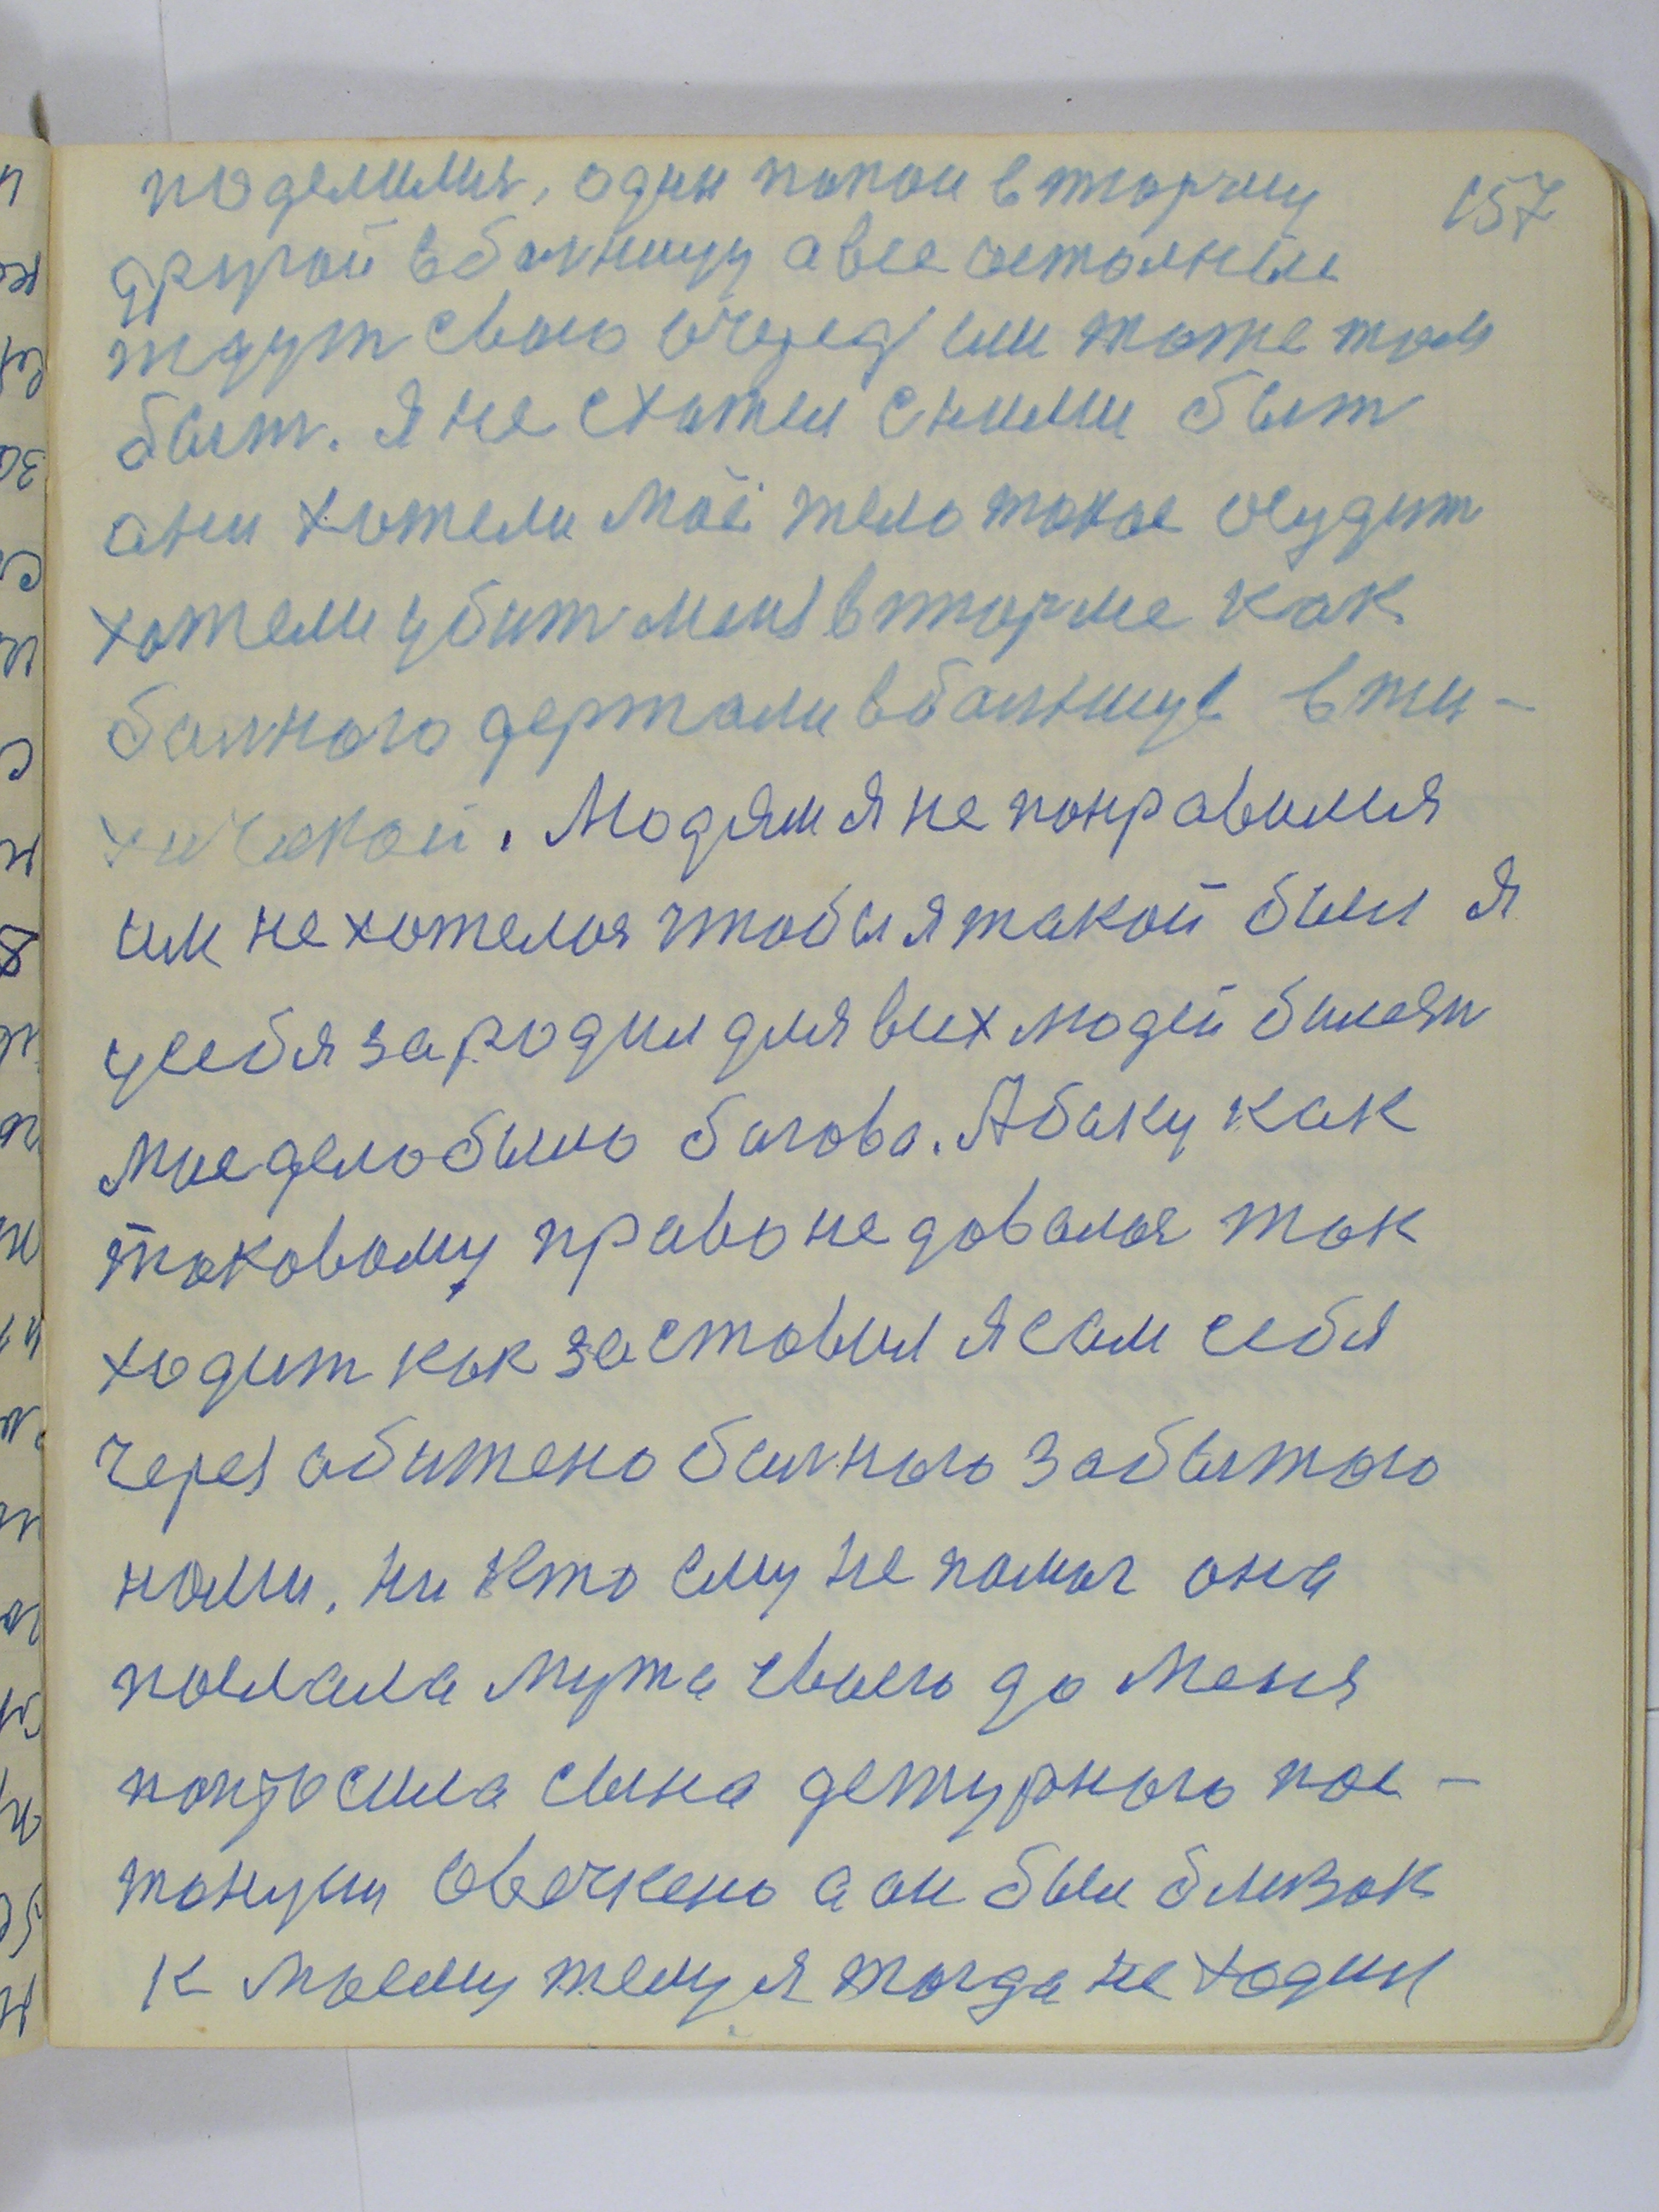 157
поделилис, один попои в тюрму
другой в болницу а все остолные
ждут свою очеред им тоже там
быт. Я не схотел сними быт
они хотели моё тело такое осудит
хотели убит меня в тюрме как
болного держали в болнице в ти-
хической. Людям я не понравился
им не хотелося чтобы я такой был я
у себя зародил для всех людей билеяп
мое дело было богово. А боку как
таковому право не довалоя так
ходит как заставил я сам себя
через обижено болного забытого
нами. Ни кто ему не помог она
послала мужа своего до меня
попросила сына дежурного пос-
танули Овечкено а он был близок
к моему телу я тогда не ходил